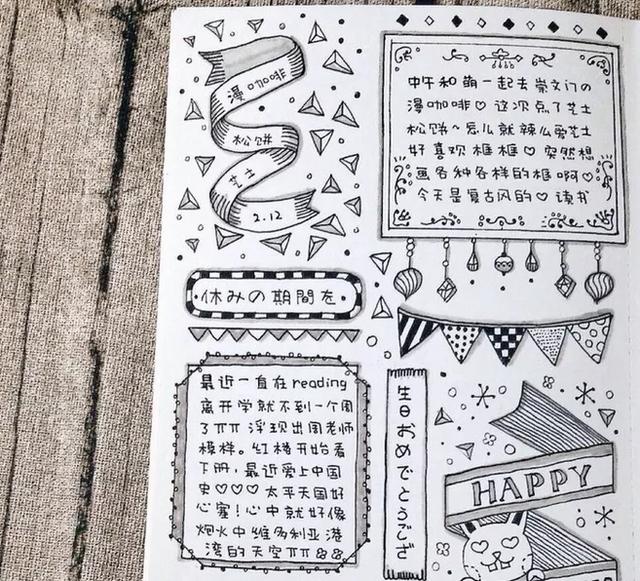 漫咖啡
松饼
芝士
2.12
中午和萌一起去崇文门の
漫咖啡♡ 这次点了芝士
松饼~怎么就辣么爱芝士
好喜欢框框♡ 突然想
画各种各样的框啊♡
今天是复古风的♡ 读书
休みの期間を
最近一直在reading
离开学就不到一个周
了ππ 浮现出周老师
模样。红楼开始看
下册,最近爱上中国
史♡♡♡ 太平天国好
心塞!心中就好像
炮火中维多利亚港
湾的天空ππ
生日おめでとうござ
HAPPY